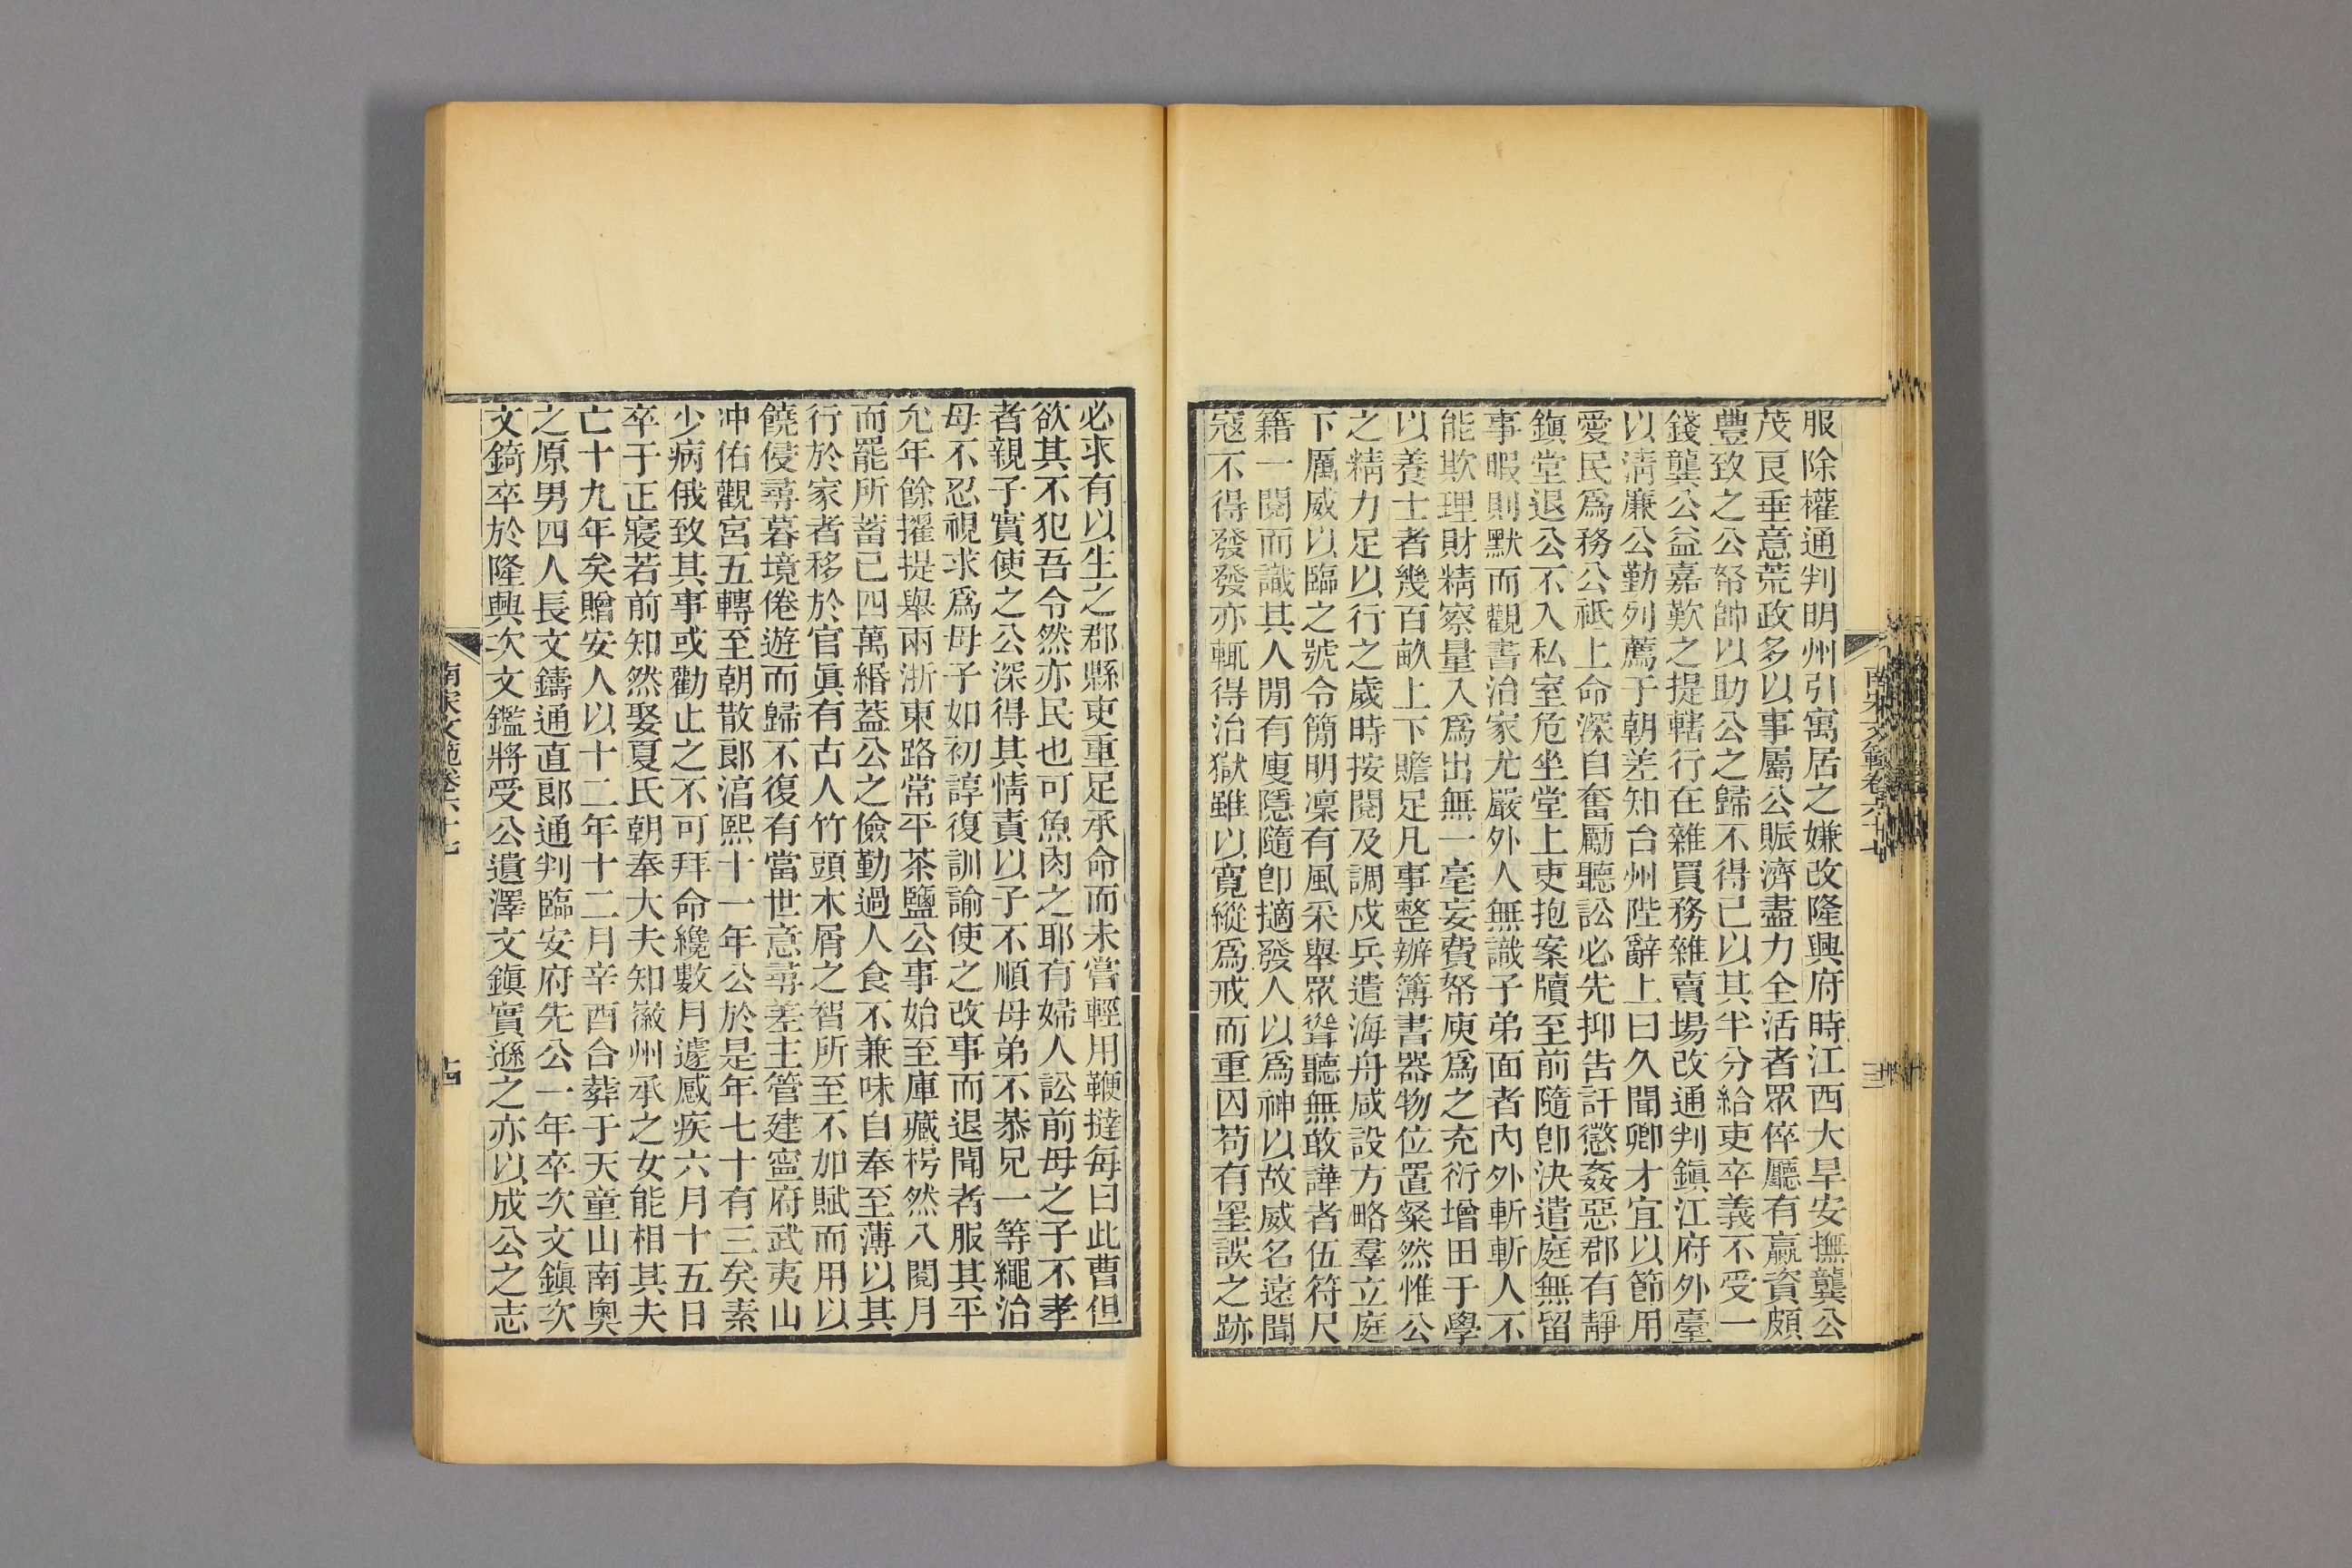 服除權通判明州引寓居之嫌改隆興府時江西大旱安撫龔公
茂良垂意荒政多以事屬公賑濟盡力全活者眾倅廳有羸資頗
豐致之公帑帥以助公之歸不得已以其半分給吏卒義不受一
錢龔公益嘉歎之提轄行在雜買務雜賣場改通判鎭江府外臺
以淸廉公勤列薦于朝差知台州陛辭上曰久聞卿才宜以節用
愛民爲務公祇上命深自奮勵聽訟必先抑告訐懲姦惡郡有靜
鎭堂退公不入私室危坐堂上吏抱案牘至前隨卽決遣庭無留
事暇則默而觀書治家尤嚴外人無識子弟面者內外斬斬人不
能欺理財精察量入爲出無一毫妄費帑庾爲之充衍增田于學
以養士者幾百畝上下贍足凡事整辦簿書器物位置粲然惟公
之精力足以行之歲時按閱及調戍兵遣海舟咸設方略羣立庭
下厲威以臨之號令簡明凜有風采舉眾聳聽無敢譁者伍符尺
籍一閱而識其人閒有廋隱隨卽擿發人以爲神以故威名遠聞
寇不得發發亦輒得治獄雖以寬縱爲戒而重囚苟有罣誤之跡
必求有以生之郡縣吏重足承命而未嘗輕用鞭撻每曰此曹但
欲其不犯吾令然亦民也可魚肉之耶有婦人訟前母之子不孝
者親子實使之公深得其情責以子不順母弟不恭兄一等繩治
母不忍視求爲母子如初諄復訓諭使之改事而退聞者服其平
允年餘擢提舉兩浙東路常平茶鹽公事始至庫藏枵然八閱月
而罷所蓄已四萬緡葢公之儉勤過人食不兼味自奉至薄以其
行於家者移於官眞有古人竹頭木屑之智所至不加賦而用以
饒侵尋暮境倦遊而歸不復有當世意尋差主管建寧府武夷山
沖佑觀宮五轉至朝散郎湻熙十一年公於是年七十有三矣素
少病俄致其事或勸止之不可拜命纔數月遽感疾六月十五日
卒于正寢若前知然娶夏氏朝奉大夫知徽州承之女能相其夫
亡十九年矣贈安人以十二年十二月辛酉合葬于天童山南奧
之原男四人長文鑄通直郎通判臨安府先公一年卒次文鎭次
文錡卒於隆興次文鑑將受公遺澤文鎭實遜之亦以成公之志
南宋文範卷六十七
十四